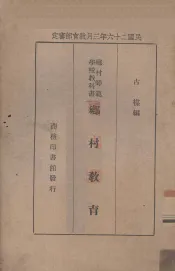 民國二十六年三月教育部審定
古楳編
鄉村師範
學校教科書
鄉村教育
商務印書館發行